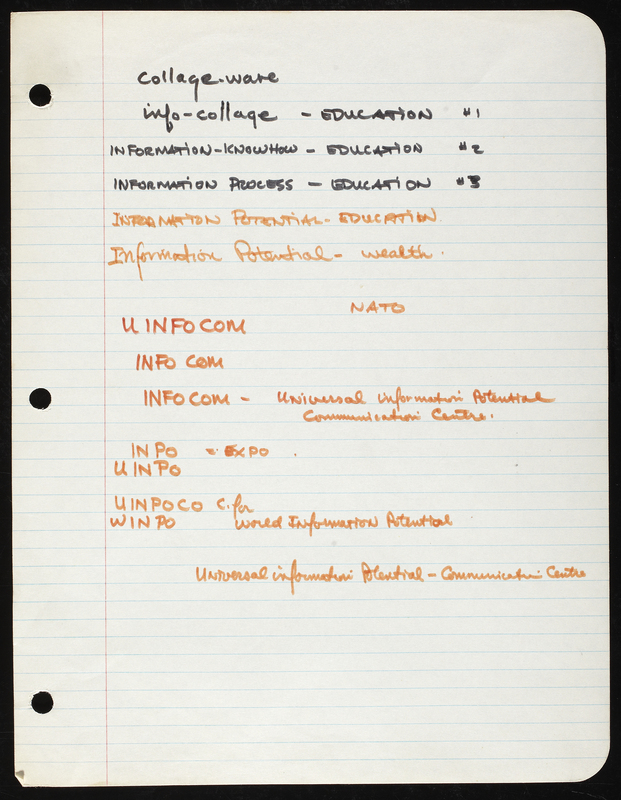 collage-ware
info-collage - EDUCATION #1
INFORMATION-KNOWHOW - EDUCATION #2
INFORMATION PROCESS - EDUCATION #3
INFORMATION POTENTIAL - EDUCATION.
Information Potential - wealth.
NATO
U INFOCOM
INFO COM
INFOCOM - Universal information Potential
Communication Centre.
INPO = EXPO
UINPO
UINPOCO C. for
WINPO World Information Potential
Universal information Potential - Communication Centre